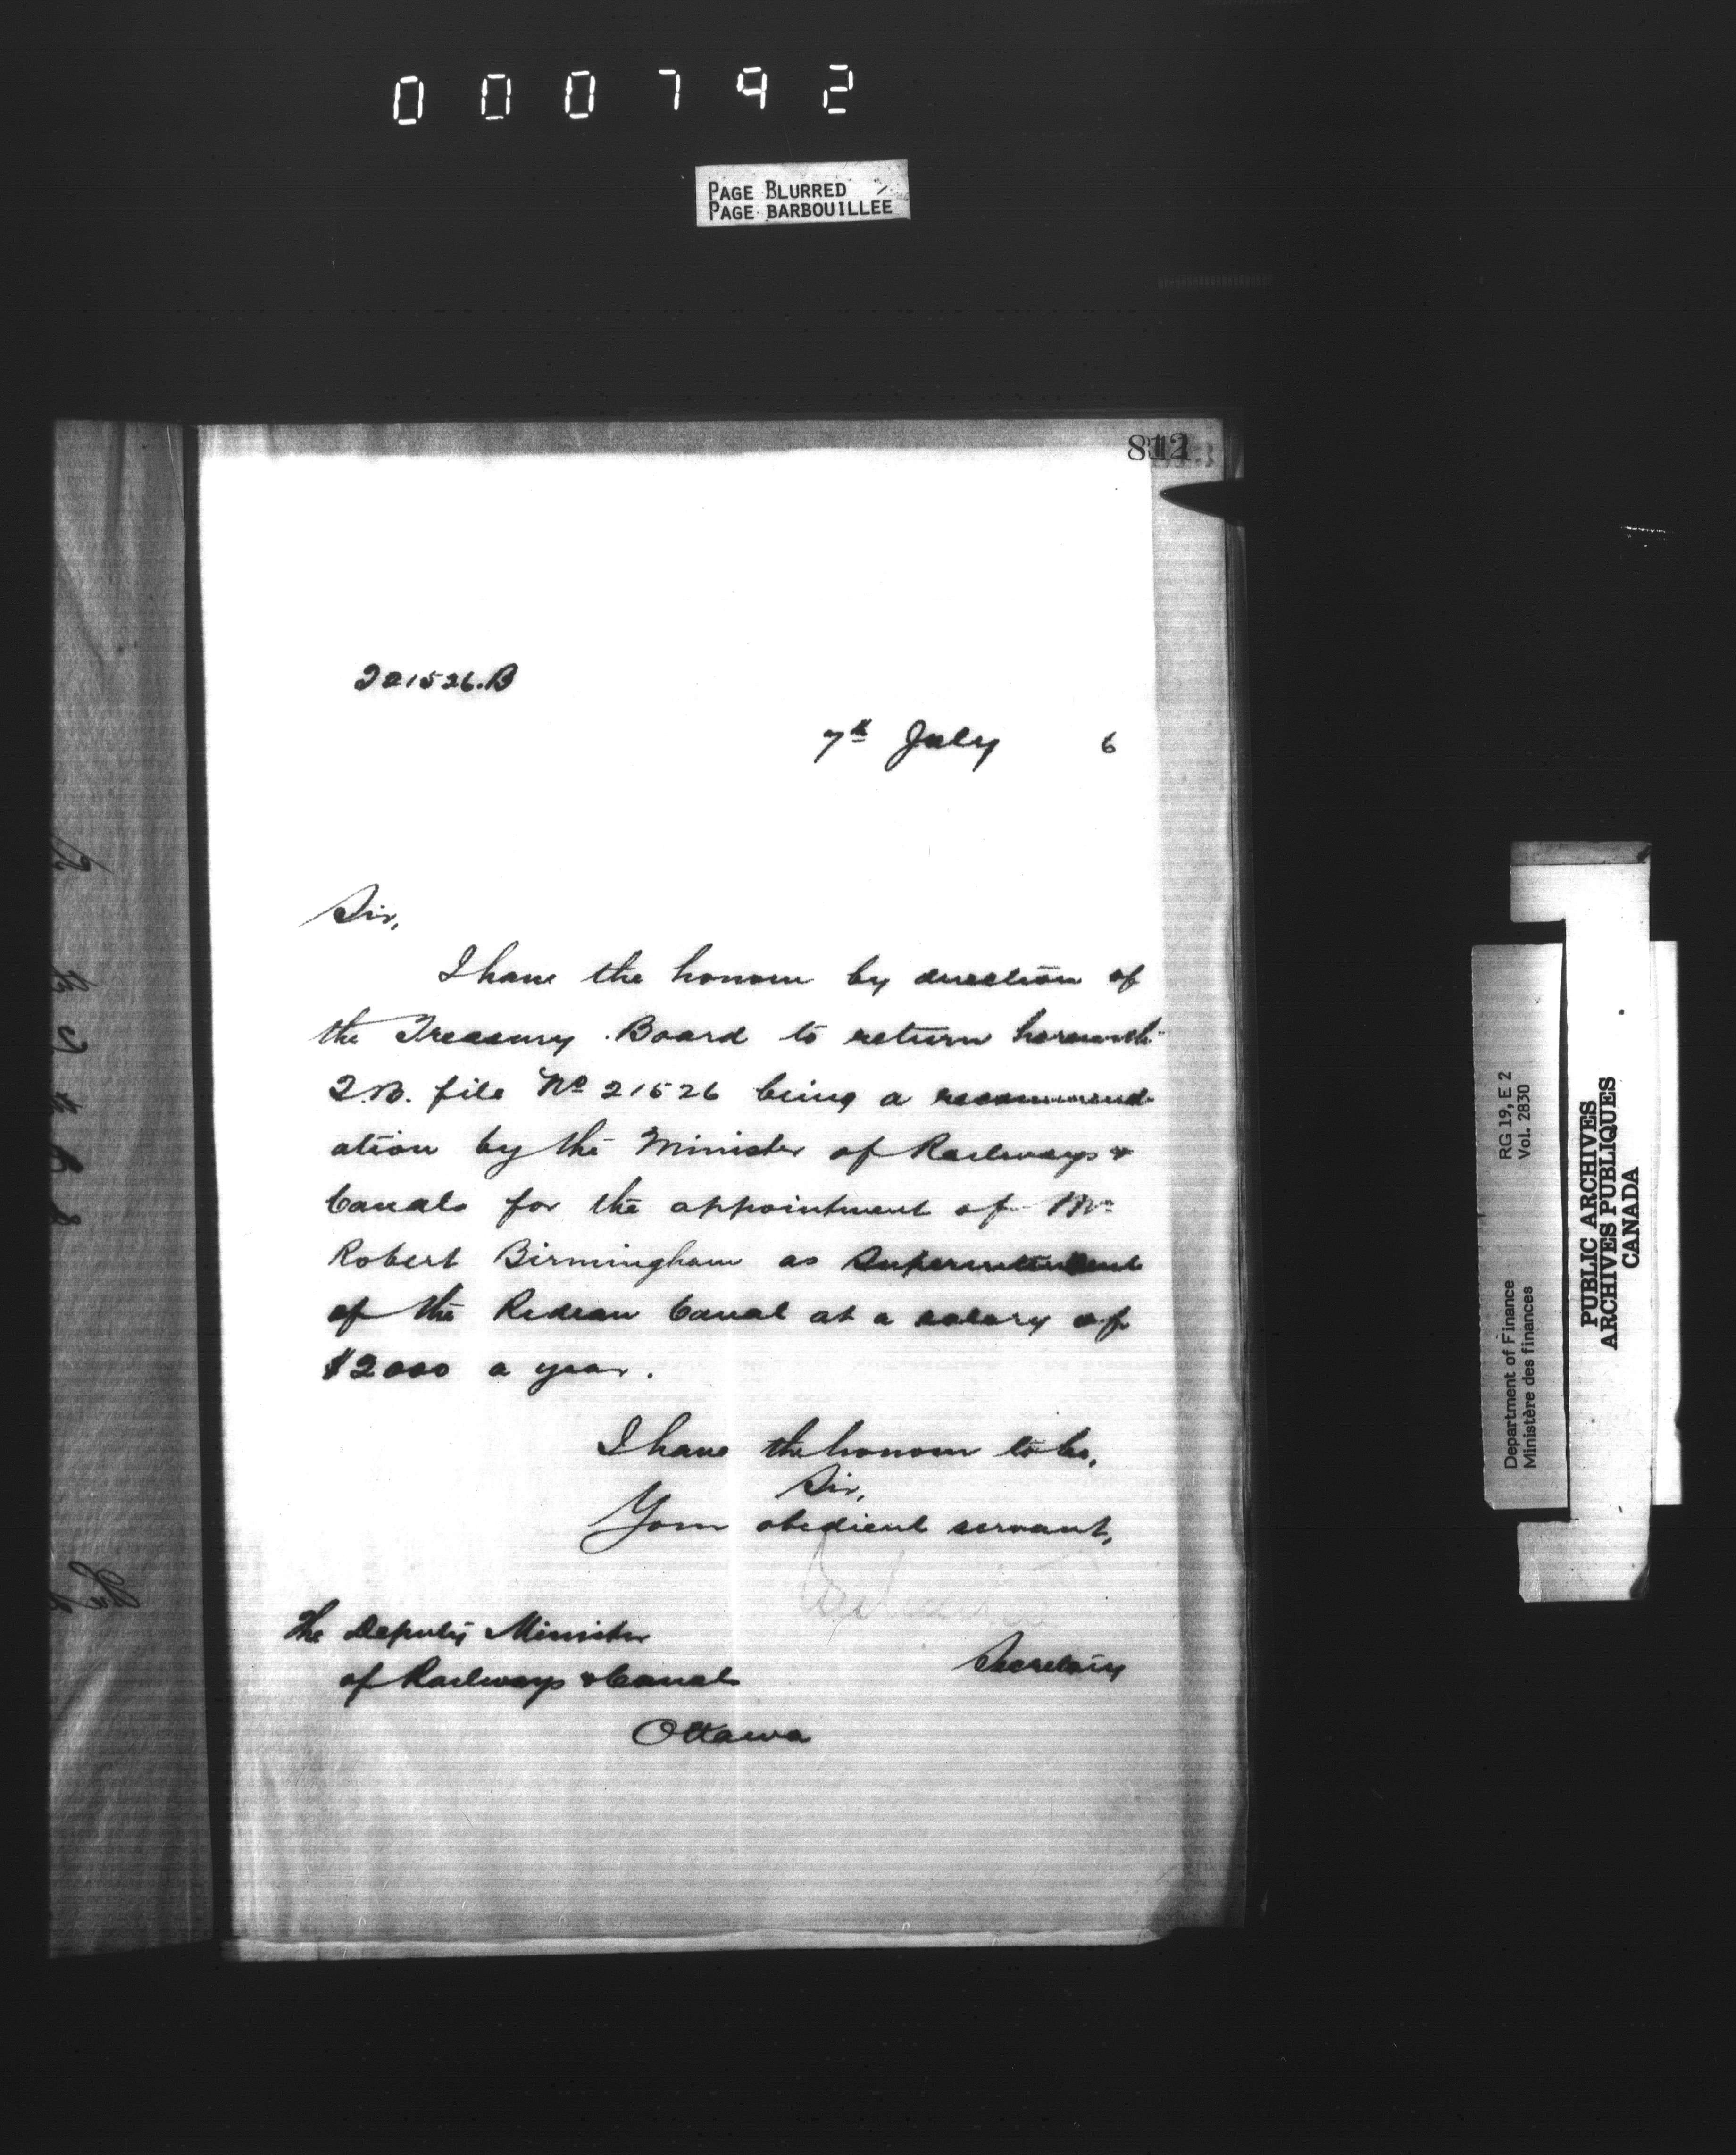 000792
PAGE BLURRED
PAGE BARBOUILLEE
812
T21526.B
7th July 6
Sir,
I have the honour by direction of
the Treasury Board to return herewith
T.B. file No 21526 being a recommend-
ation by the Minister of Railways &
Canals for the appointment of Mr
Robert Birmingham as Superintendent
of the Rideau Canal at a salary of
$2000 a year.
I have the honour to be,
Sir,
Your obedient servant,
Secretary
The Deputy Minister
of Railways & Canals
Ottawa
Department of Finance RG 19, E 2
Ministère des finances Vol. 2830
PUBLIC ARCHIVES
ARCHIVES PUBLIQUES
CANADA